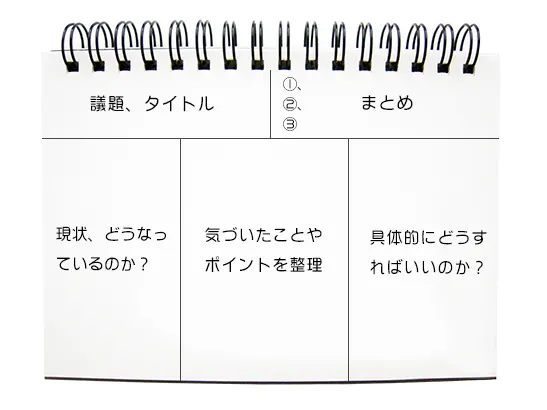 議題、タイトル
①、
②、
③
まとめ
現状、どうなっ
ているのか？
気づいたことや
ポイントを整理
具体的にどうす
ればいいのか？